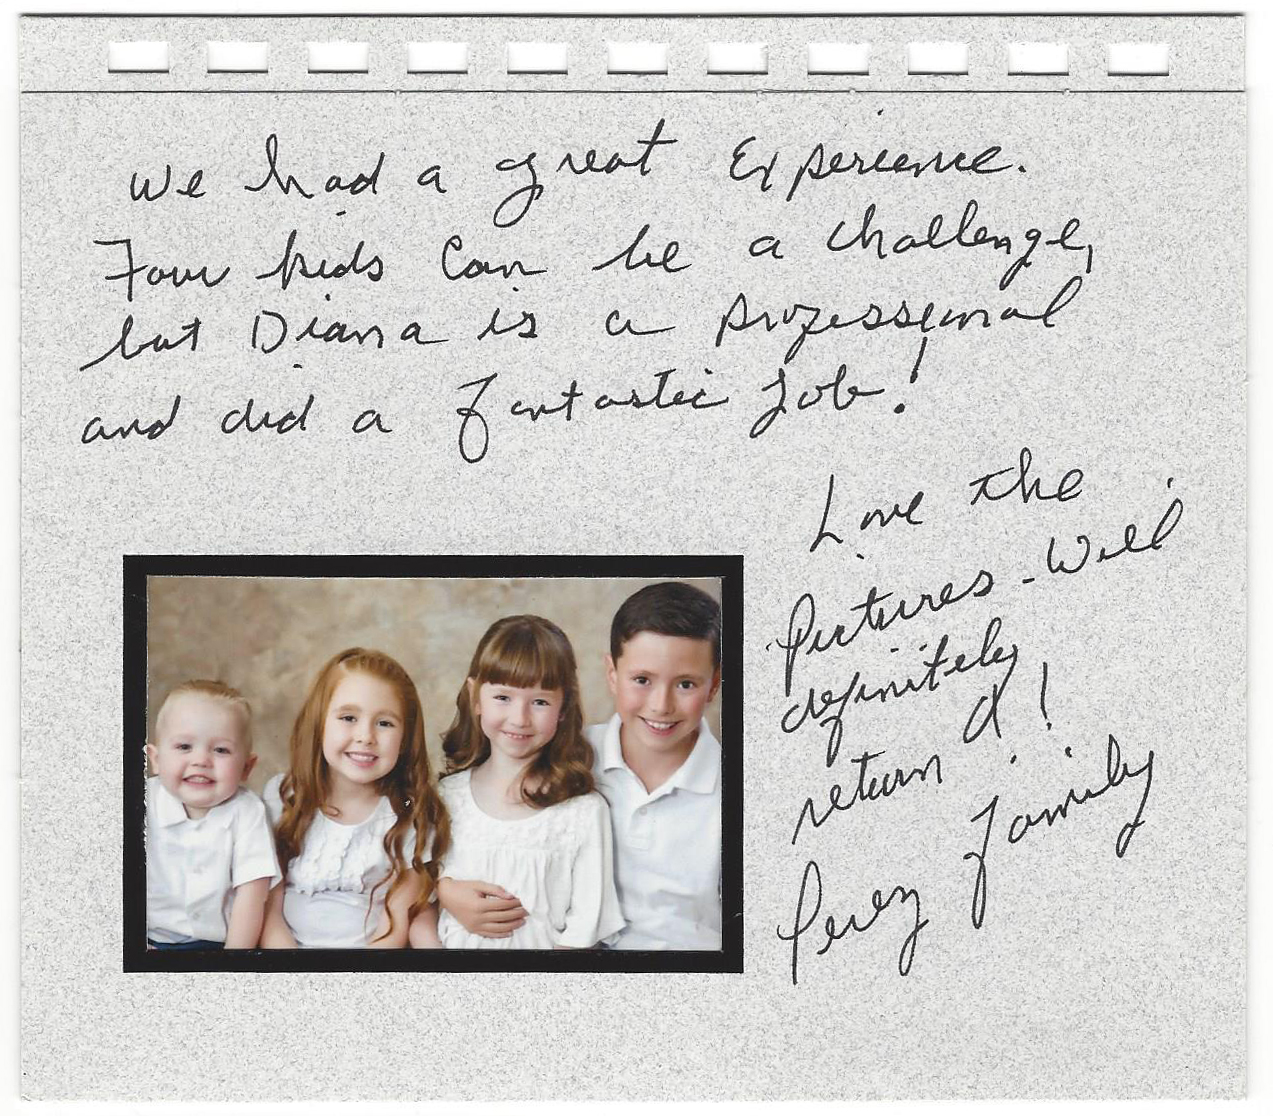 We had a great Experience.
Four kids Can be a challenge,
but Diana is a professional
and did a fantastic Job!
Love the
Pictures - Will
definitely
return !
Perez family